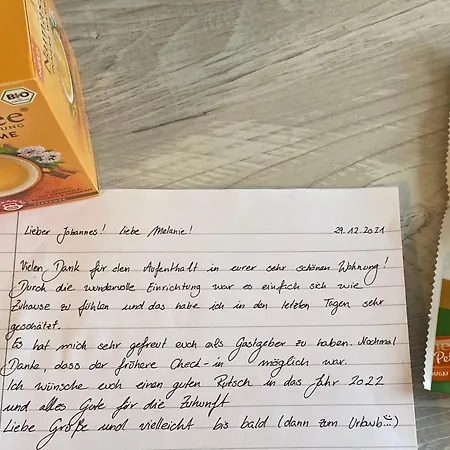 BIO
ee
UNG
ME
Lieber Johannes! Liebe Melanie! 29.12.2021
Vielen Dank für den Aufenthalt in eurer sehr schönen Wohnung!
Durch die wundervolle Einrichtung war es einfach sich wie
Zuhause zu fühlen und das habe ich in den letzten Tagen sehr
geschätzt.
Es hat mich sehr gefreut euch als Gastgeber zu haben. Nochmal
Danke, dass der frühere Check-in möglich war.
Ich wünsche euch einen guten Rutsch in das Jahr 2022
und alles Gute für die Zukunft.
Liebe Grüße und vielleicht bis bald (dann zum Urlaub...)